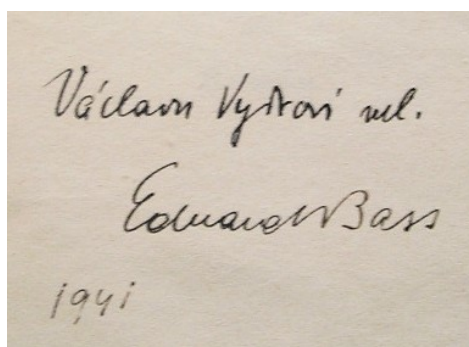 Václavu Vydrovi vel.
Eduard Bass
1941